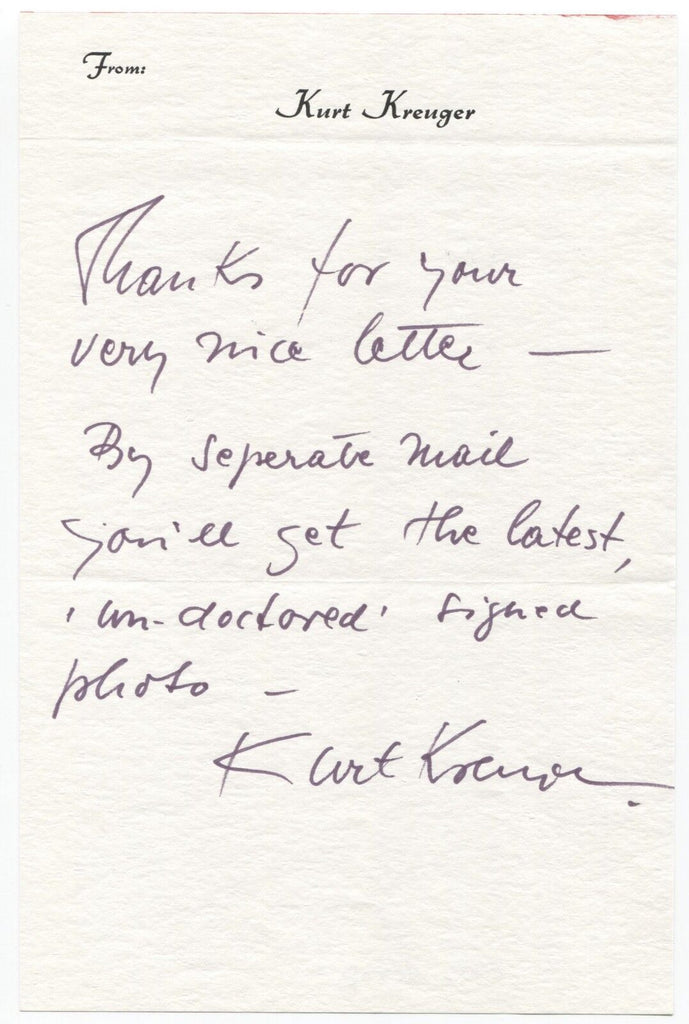 From:
Kurt Kreuger
Thanks for your
very nice letter —
By seperate mail
you'll get the latest,
'un-doctored' signed
photo –
Kurt Kreuger